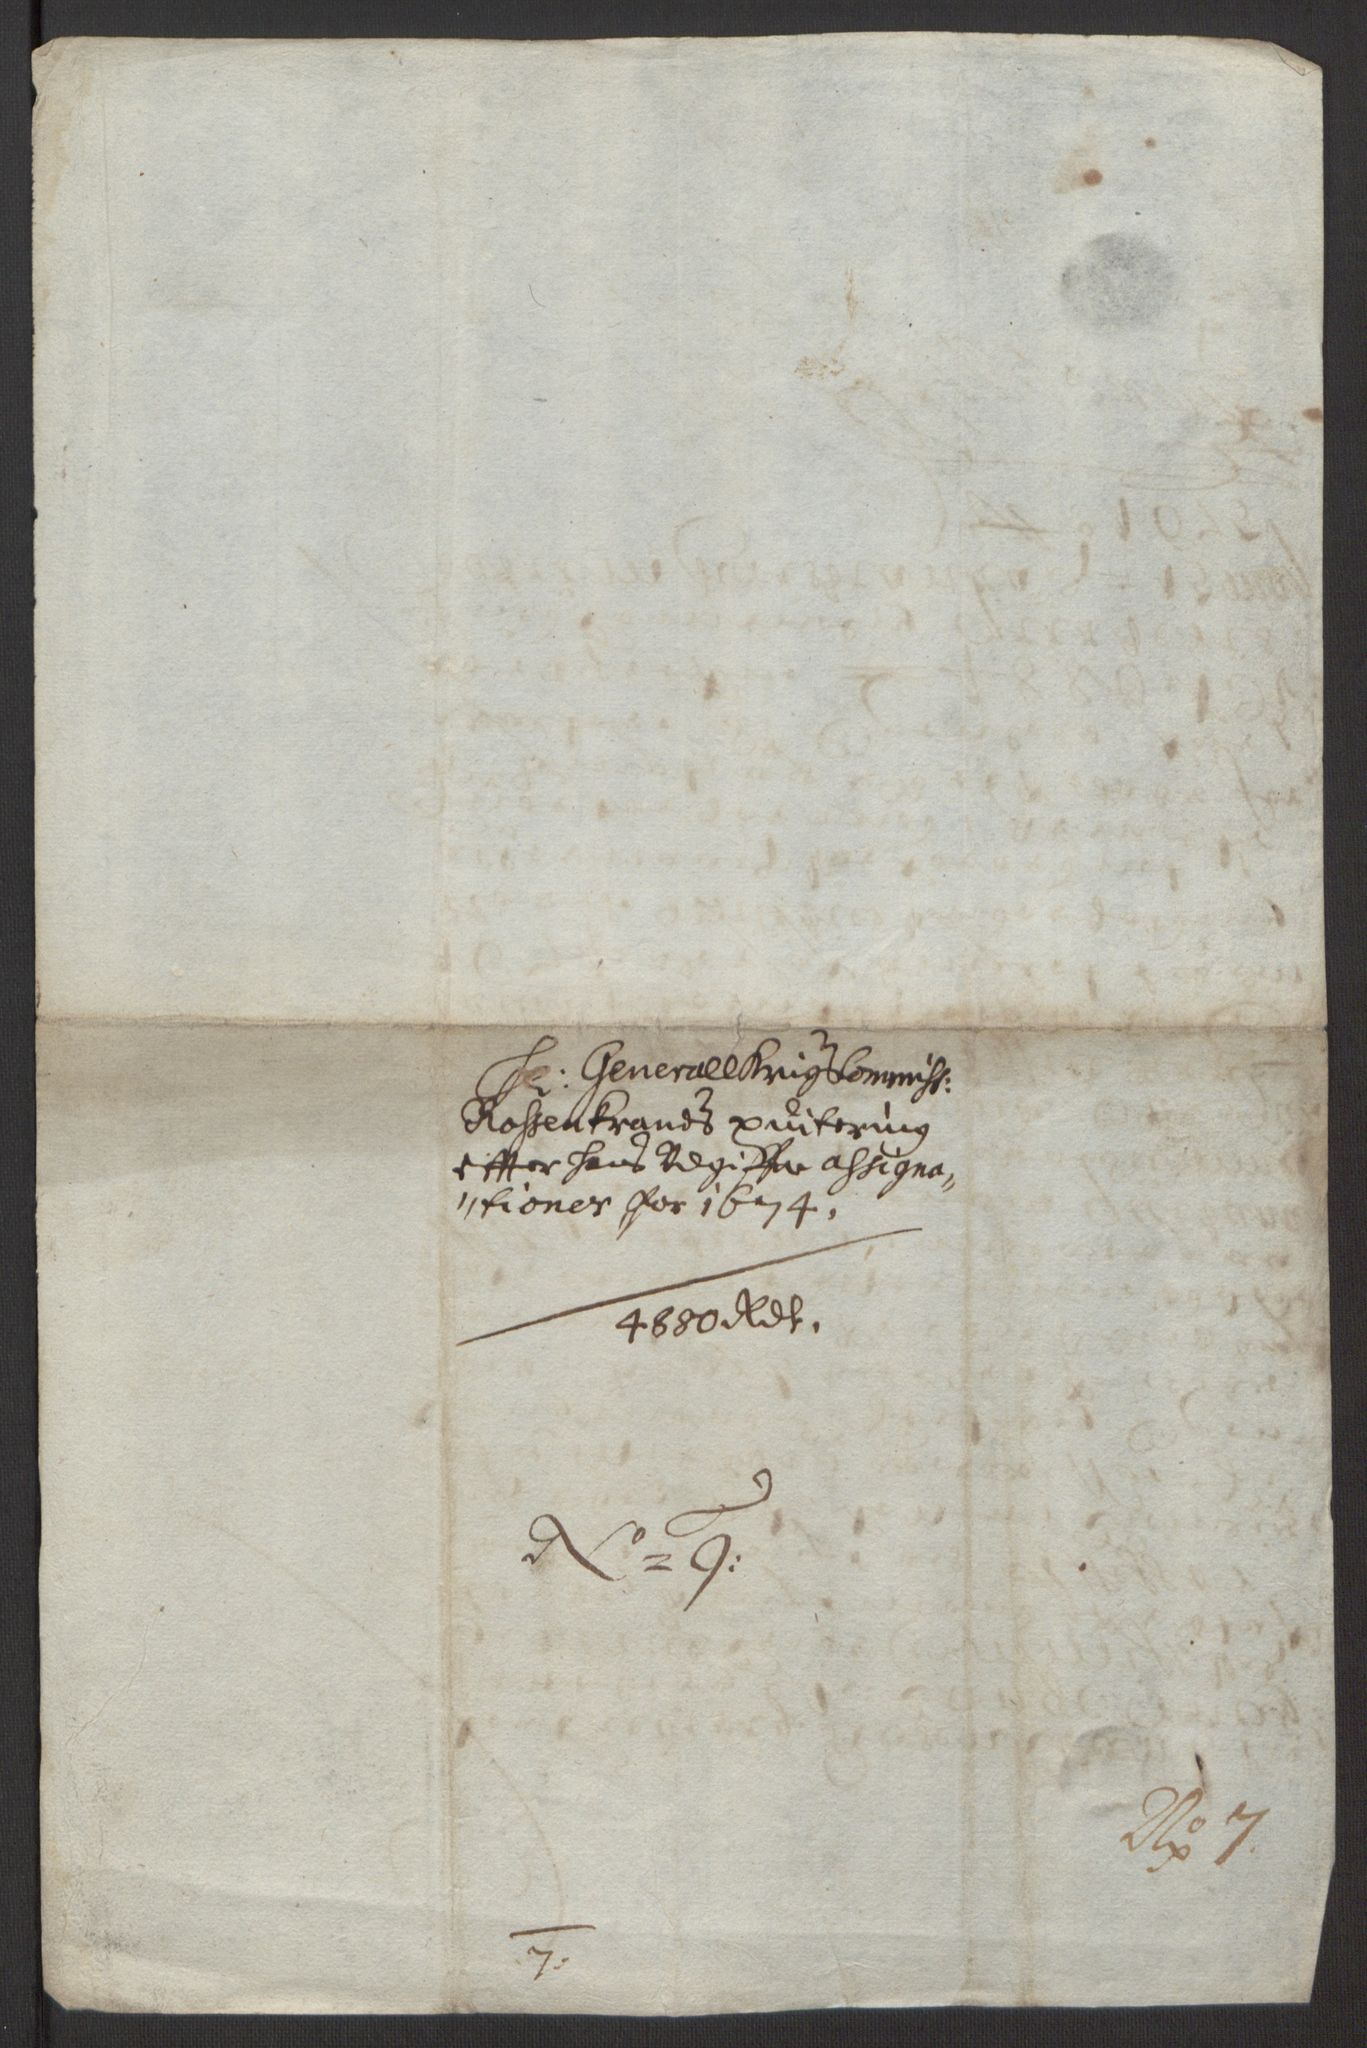 Hr: Generall Krigs Commiss:
Rossenkrands qvitering
effter hans assigna„
„tioner for 1674.
4880 Rdr.
No = 9:
No 7.
7: